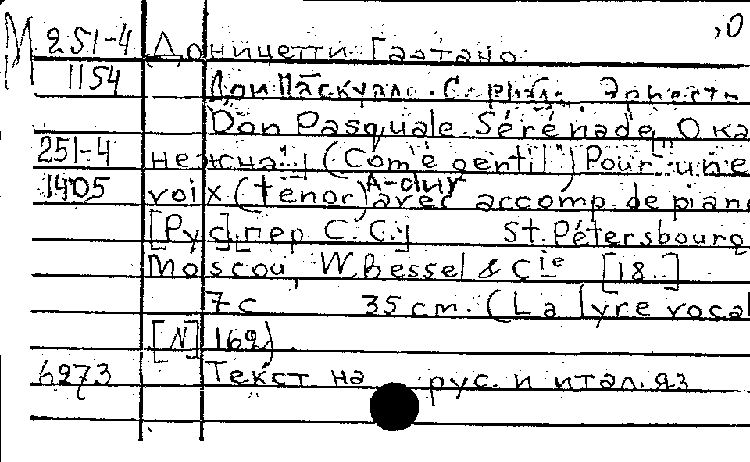 М 251-4 Доницетти Гаэтано
1154 Дон Паскуале. Эрнеста
Don Pasquale. Sérénade „О ка
251-4 нежна"! (Com'è gentil") Pour une
1405 voix (ténor) A-dur avec accomp. de piano
[Рус] пер С. С. St. Pétersbourg
Moscou, W. Bessel & Cie [18..]
7 с 35 cm. (La lyre vocal
[N] 162)
6273 Текст на рус. и итал. яз